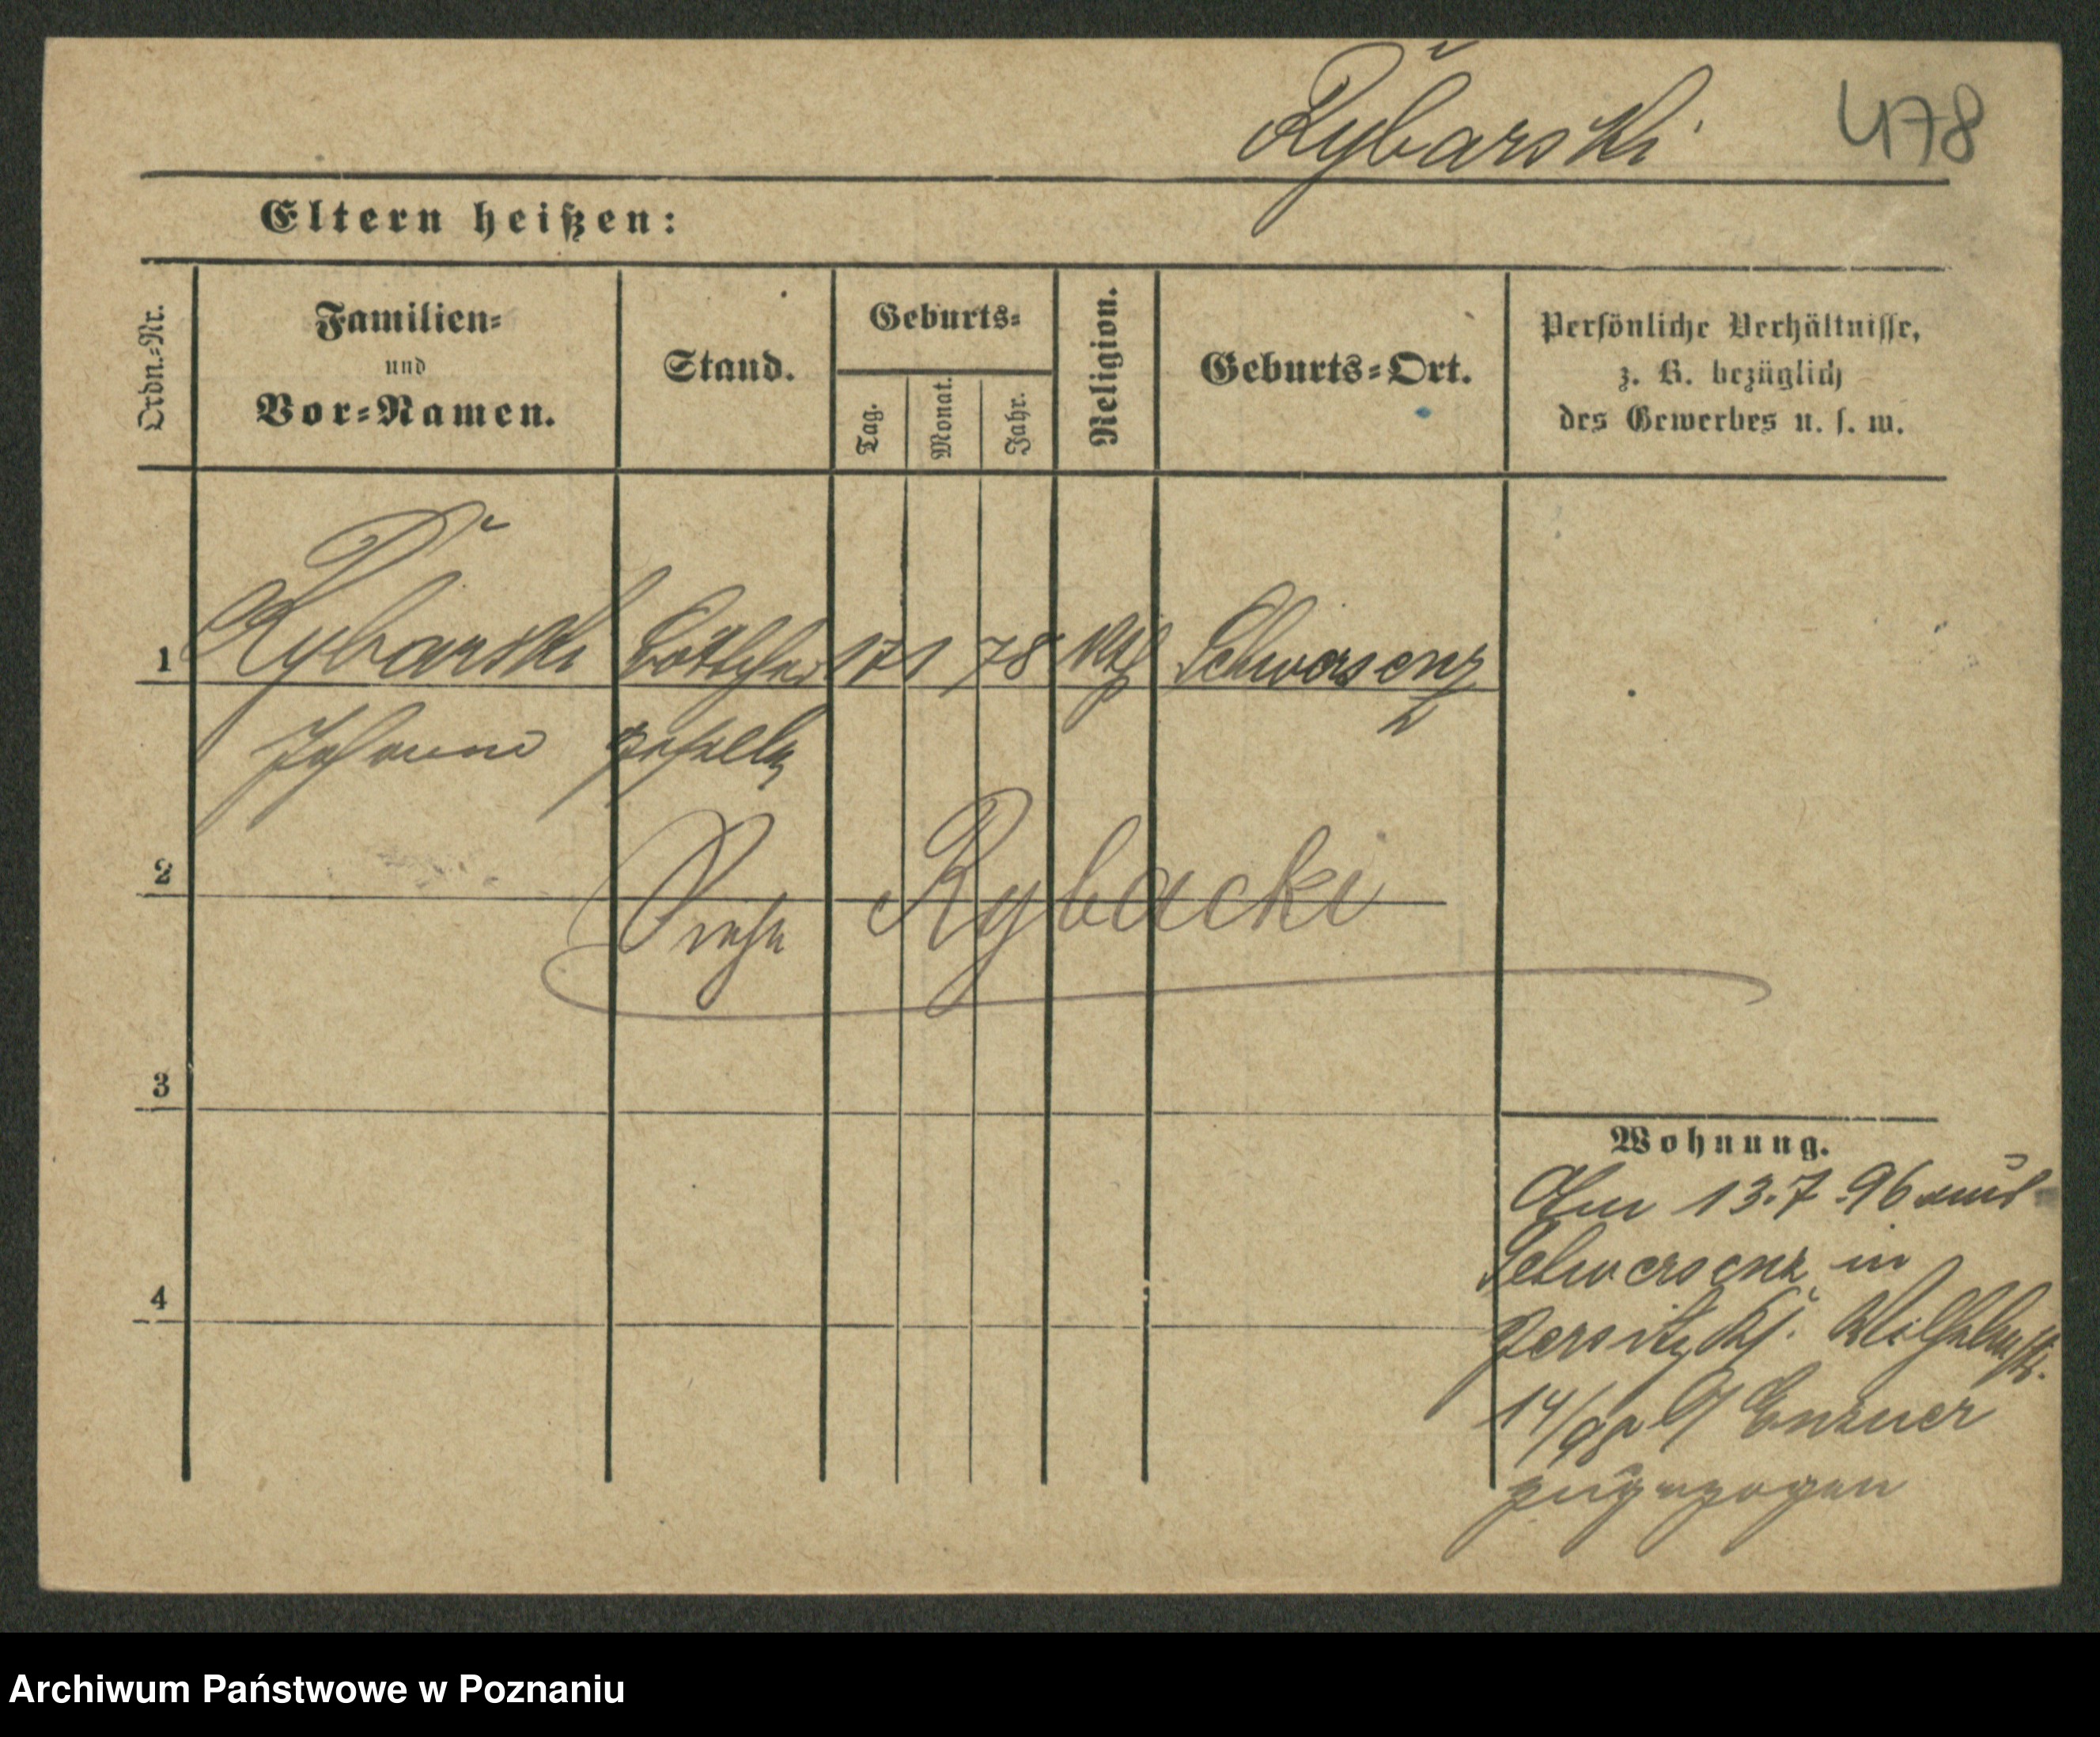 Rybarski 478
Eltern heißen:
Ordn.-Nr.
Familien-
und
Vor-Namen.
Stand.
Geburts-
Tag.
Monat.
Jahr.
Religion.
Geburts-Ort.
Persönliche Verhältnisse,
z. B. bezüglich
des Gewerbes u. s. w.
1 Rybarski Böttcher 17 1 78 kth Schwersenz
Johann geselle
2
Siehe Rybacki
3
4
Wohnung.
Am 13.7.96 aus
Schwersenz in
Jersitz Wilhelmstr.
14/98
zugezogen
Archiwum Państwowe w Poznaniu